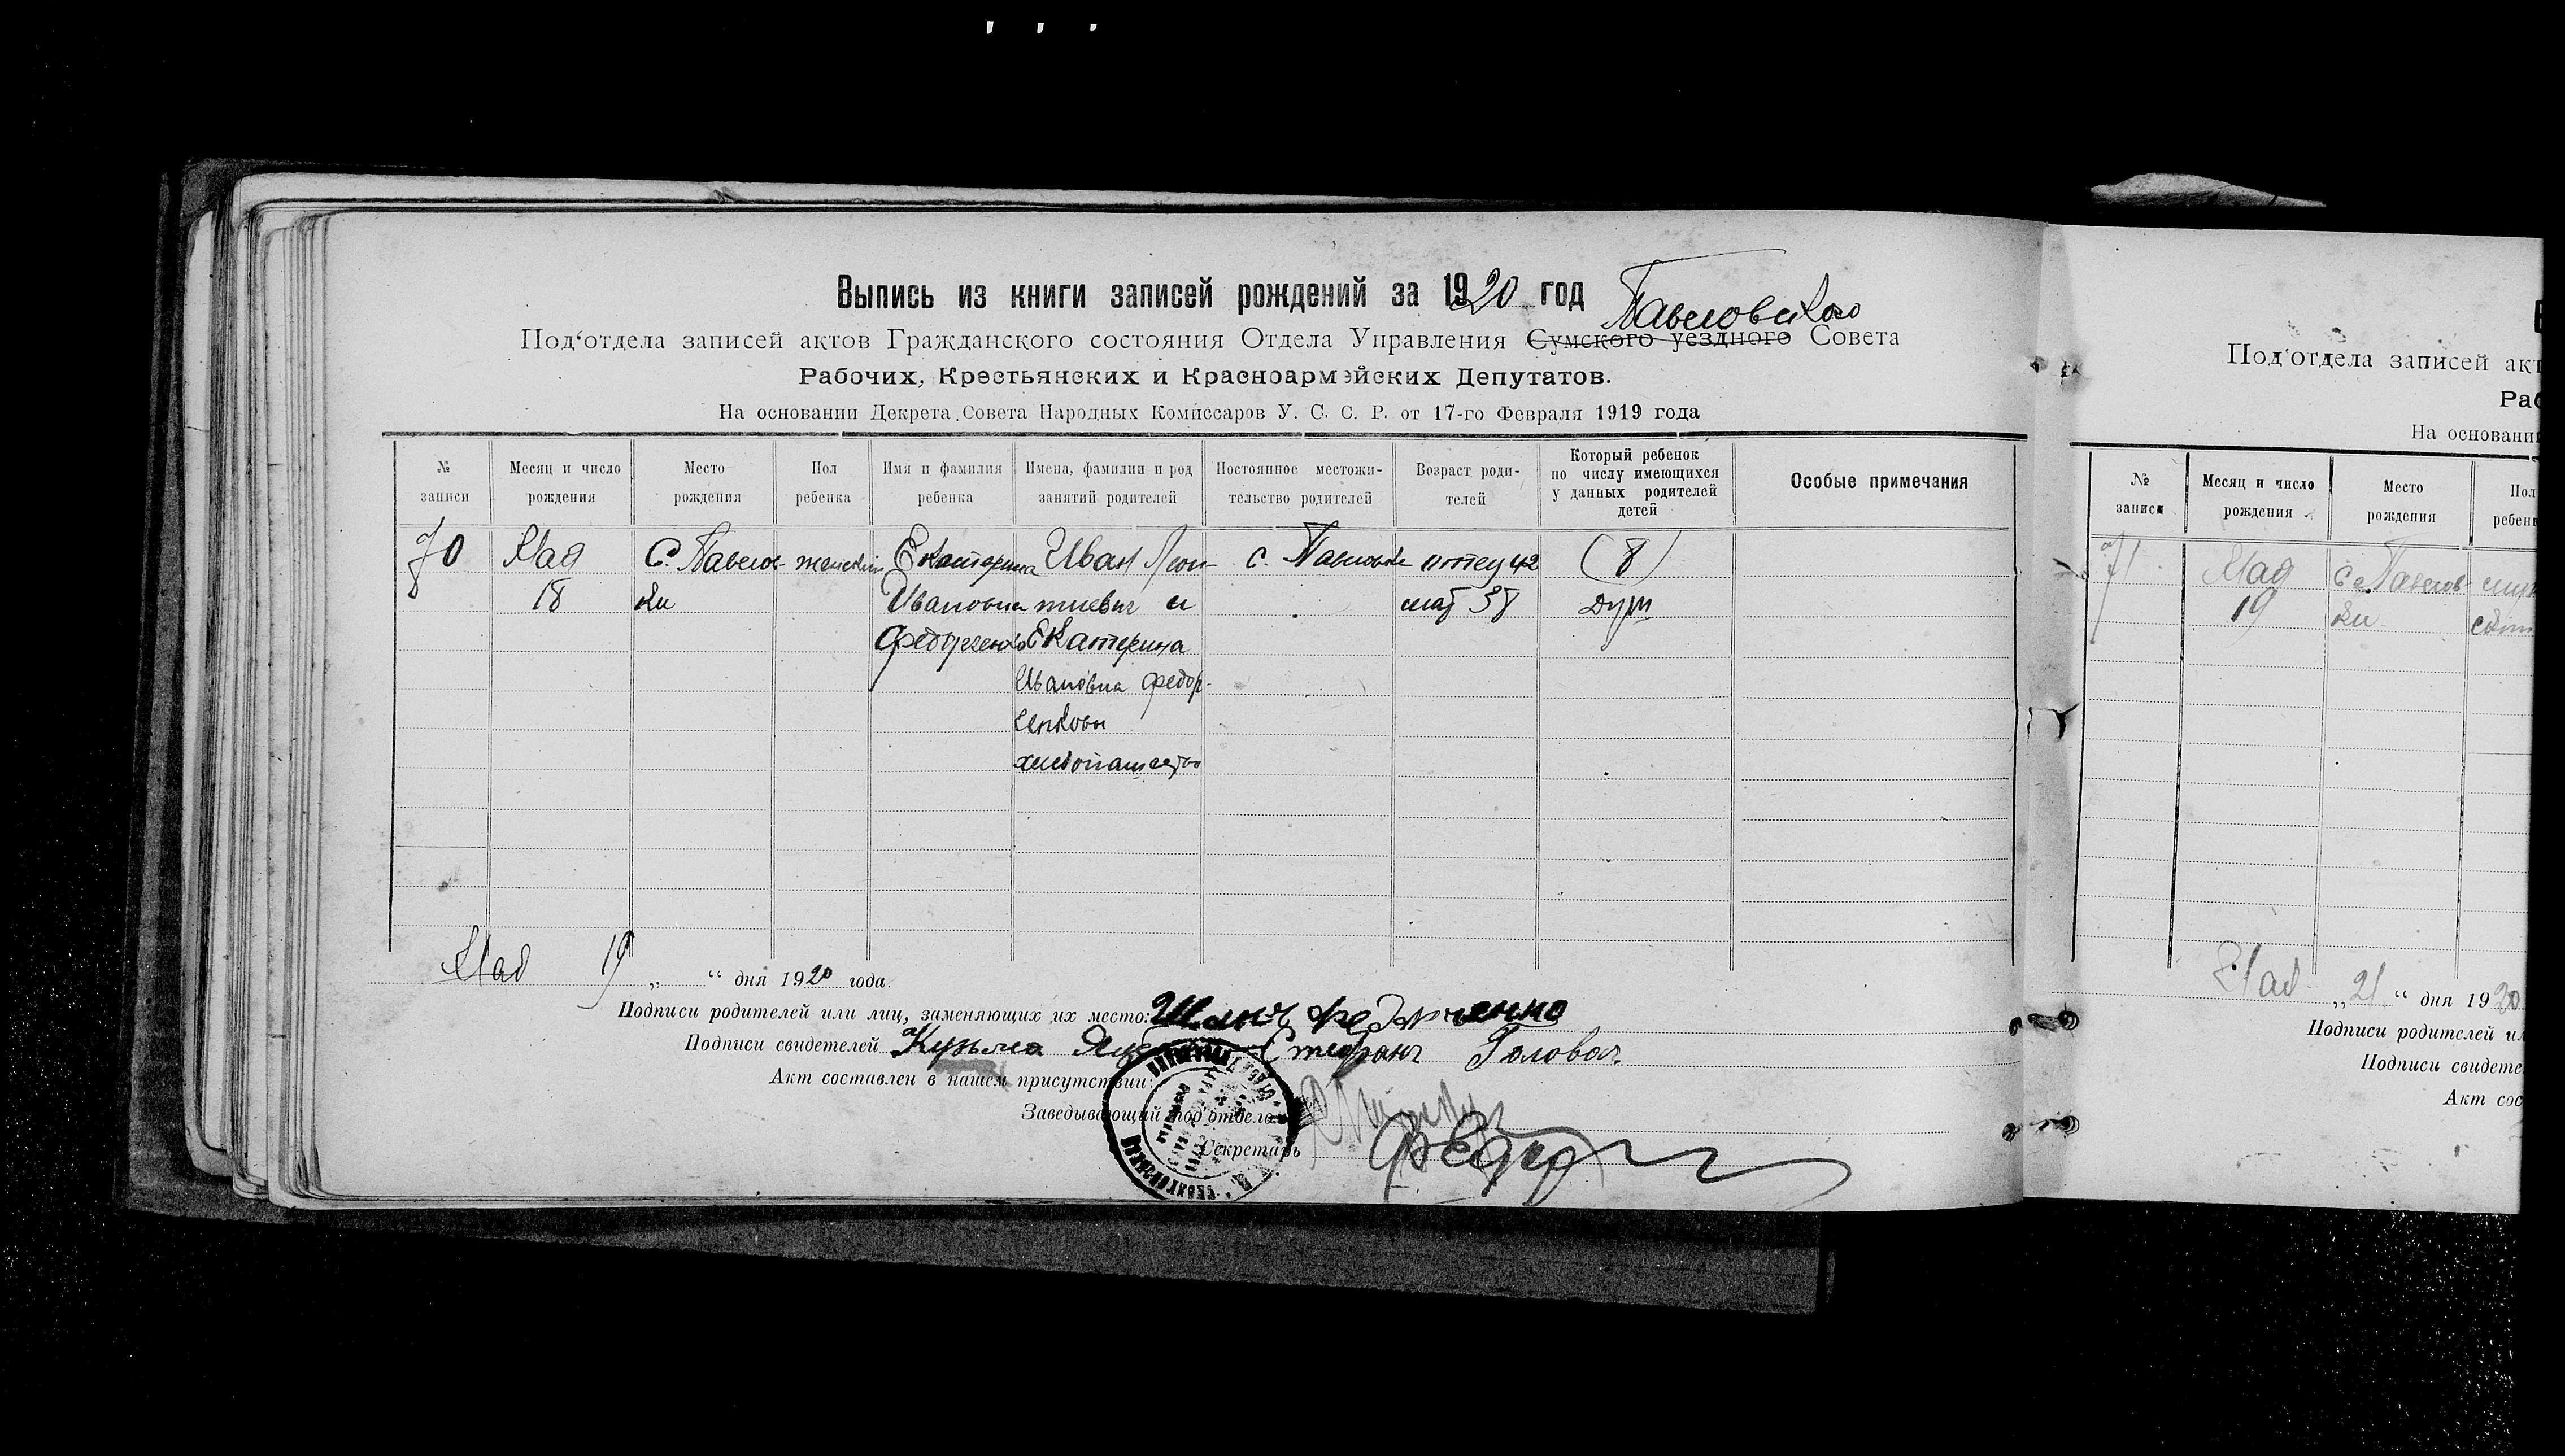 Выпись из книги записей рождений за 1920 год
Павловского
Под‘отдела записей актов Гражданского состояния Отдела Управления Сумского уездного Совета
Рабочих, Крестьянских и Красноармейских Депутатов.
На основании Декрета Совета Народных Комиссаров У. С. С. Р. от 17-го Февраля 1919 года
№ записи
Месяц и число рождения
Место рождения
Пол ребенка
Имя и фамилия ребенка
Имена, фамилии и род занятий родителей
Постоянное местожительство родителей
Возраст родителей
Который ребенок по числу имеющихся у данных родителей детей
Особые примечания
70 Мая С. Павлов- женский Екатерина Иван Леон- с. Павловки отец 42 (8)
18 ки Ивановна тиевич и мат 38 душ
Федорченко Екатерина
Ивановна Федор-
ченковы
хлебопашество
Мая 19 „ “ дня 1920 года.
Подписи родителей или лиц, заменяющих их место: Иван Федорченко
Подписи свидетелей Кузьма Стефан Головач
Акт составлен в нашем присутствии:
Заведывающий под‘отделом
Секретарь
Под‘отдела записей акт
Раб
На основании
№ записи
Месяц и число рождения
Место рождения
Пол ребенк
71 Мая с. Павлов-
19 ки
Мая „21“ дня 1920
Подписи родителей ил
Подписи свидете
Акт сос